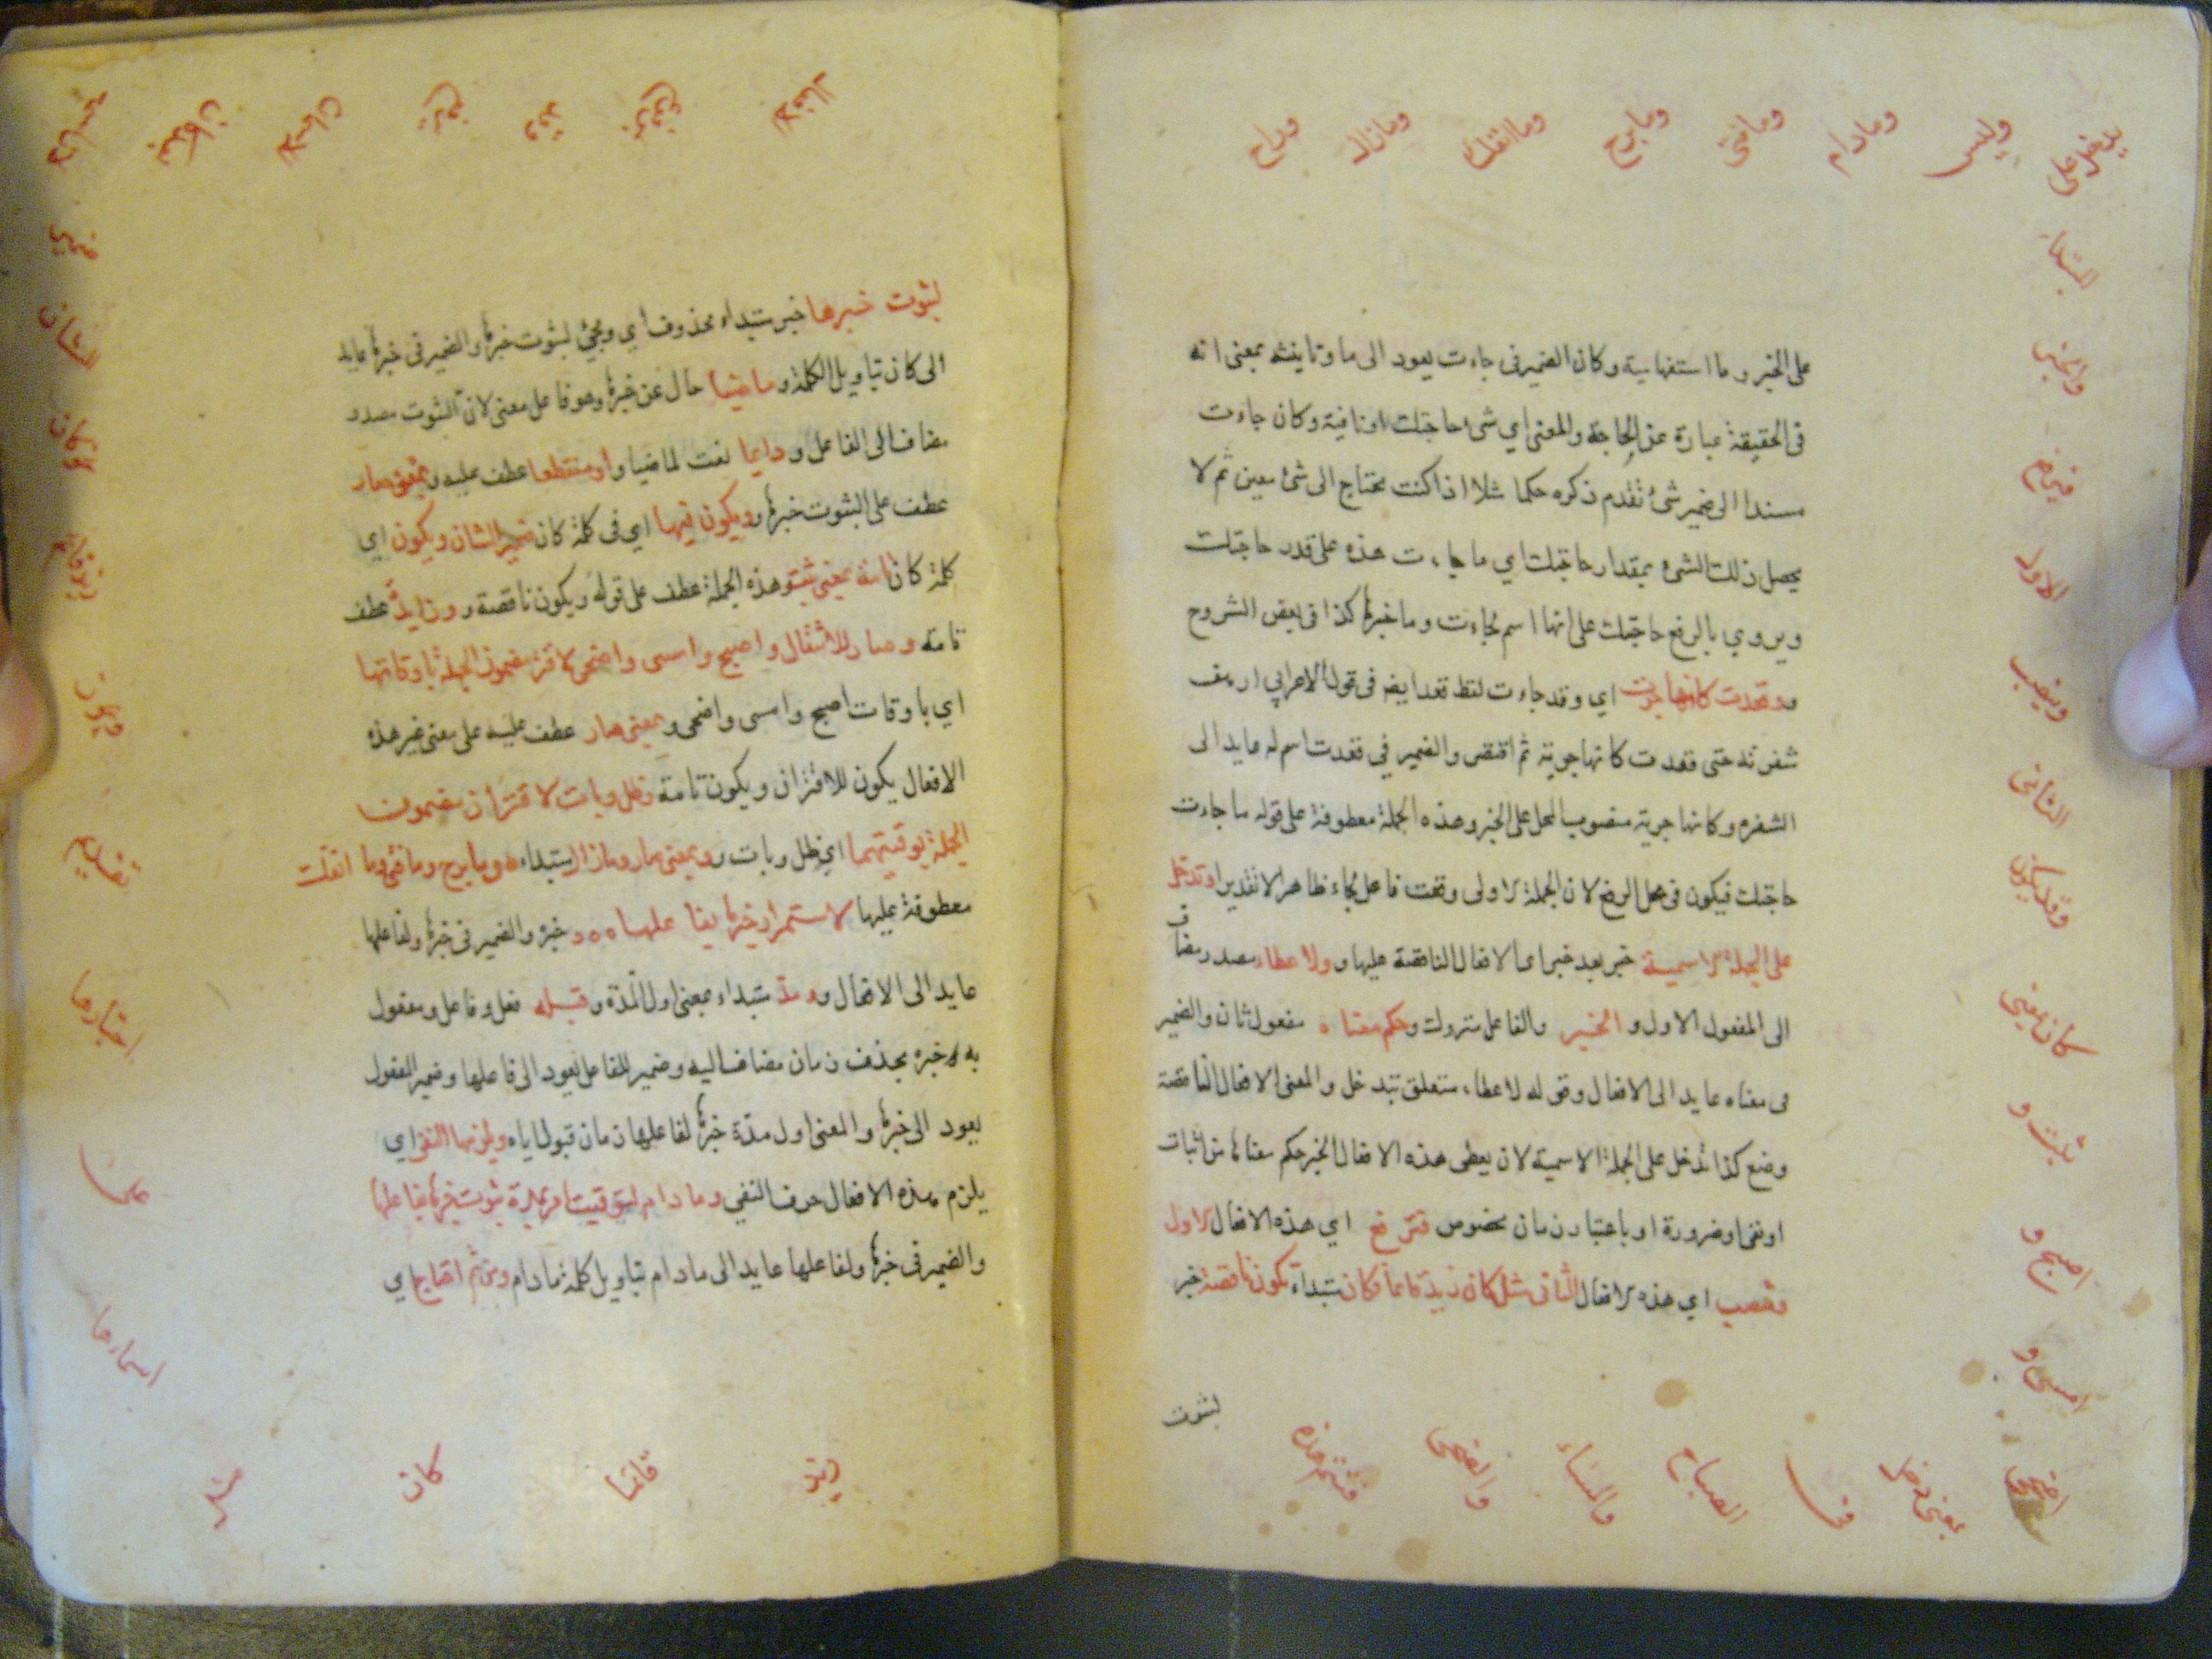 وراح
ومازال
وماانفك
ومابرح
ومافتئ
ومادام
وليس
يدخل على
المبتدأ
والخبر
فيرفع
الاول
وينصب
الثاني
وقد يكون
كان بمعنى
ثبت و
اصبح و
امسى و
على الخبر وما استفهامية وكان الضمير فى جاءت يعود الى ما وتانيثه بمعنى انه
فى الحقيقة عبارة عن الحاجة والمعنى اي شئ حاجتك او نافية وكان جاءت
مسندا الى ضمير شئ تقدم ذكره حكما مثلا اذا كنت محتاج الى شئ معين ثم لا
يحصل ذلك الشئ بمقدار حاجتك اي ما جاءت هذه على قدر حاجتك
ويروي بالرفع حاجتك على انها اسم لجاءت وما خبرها كذا فى بعض الشروح
و وقعدت كانها حربة اي وقد جاءت لفظ قعد ايضا فى قول الاعرابي ارهف
شفرته حتى قعدت كانها حربة ثم اقتض والضمير في قعدت اسم له عايد الى
الشفره وكانها حربة منصوب المحل على الخبر وهذه الجملة معطوفة على قوله ما جاءت
حاجتك فيكون فى محل الرفع لان الجملة الاولى وقعت فاعل لجاء ظاهرا لا تقديرا وتدخل
على الجملة الاسمية خبر بعد خبر اى الافعال الناقصة عليها و ولاعطاء مصدر مضاف
الى المفعول الاول و الخبر والفاعل متروك وحكم معناه مفعول ثان والضمير
فى معناه عايد الى الافعال وقوله لاعطاء متعلق بتدخل والمعنى الافعال الناقصة
وضع كذا تدخل على الجملة الاسمية لان يعطى هذه الافعال الخبر حكم معناها من اثبات
او نفى او ضرورة او باعتبار زمان مخصوص فترفع اي هذه الافعال الاول
وتنصب اي هذه الافعال الثانى مثل كان زيد قائما فكان مبتداء تكون ناقصة خبر
لثبوت
والضحى
والمساء
الصباح
بمعنى دخل
لثبوت خبرها خبر مبتداء محذوف اي ويجئ لثبوت خبرها والضمير فى خبرها عايد
الى كان بتاويل الكلمة و ماضيا حال عن خبرها وهو فاعل معنى لان الثبوت مصدر
مضاف الى الفاعل و دايما نعت لماضيا و او منقطعا عطف عليه و بمعنى صار
عطف على الثبوت خبرها و ويكون فيها اي فى كلمة كان ضمير الشان ويكون اي
كلمة كان تامة بمعنى ثبت وهذه الجملة عطف على قوله ويكون ناقصة و وزايدة عطف
تامه وصار للانتقال واصبح وامسى واضحى لاقتران مضمون الجملة باوقاتها
اي باوقات اصبح وامسى واضحى و بمعنى صار عطف عليه على معنى غير هذه
الافعال يكون للاقتران ويكون تامة وظل وبات لاقتران مضمون
الجملة بوقتيهما اي ظل وبات و وبمعنى صار ومازال مبتداء ومابرح ومافتئ وما انفك
معطوفة عليها لاستمرار خبرها بفاعلها خبره والضمير فى خبرها ولفاعلها
عايد الى الافعال و ومذ مبتداء بمعنى اول المدة و قبله فعل وفاعل ومفعول
به وخبره بحذف زمان مضاف اليه وضمير للفاعل يعود الى فاعلها وضمير المفعول
يعود الى خبرها والمعنى اول مدة خبرها لفاعلها زمان قبول اياه ويلزمها النفى اي
يلزم هذه الافعال حرف النفي ومادام لتوقيت امر بمدة ثبوت خبرها بفاعلها
والضمير فى خبرها ولفاعلها عايد الى مادام بتاويل كلمة مادام ومن ثم احتاج اي
ضمير
الشان
تقديم
اخبارها
على
اسمائها
مثل
كان
قائما
زيد